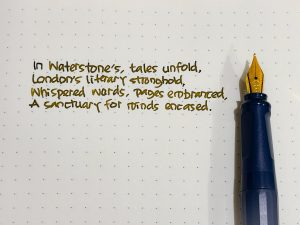 In Waterstone's, tales unfold,
London's literary stronghold,
Whispered words, pages embraced,
A sanctuary for minds encased.